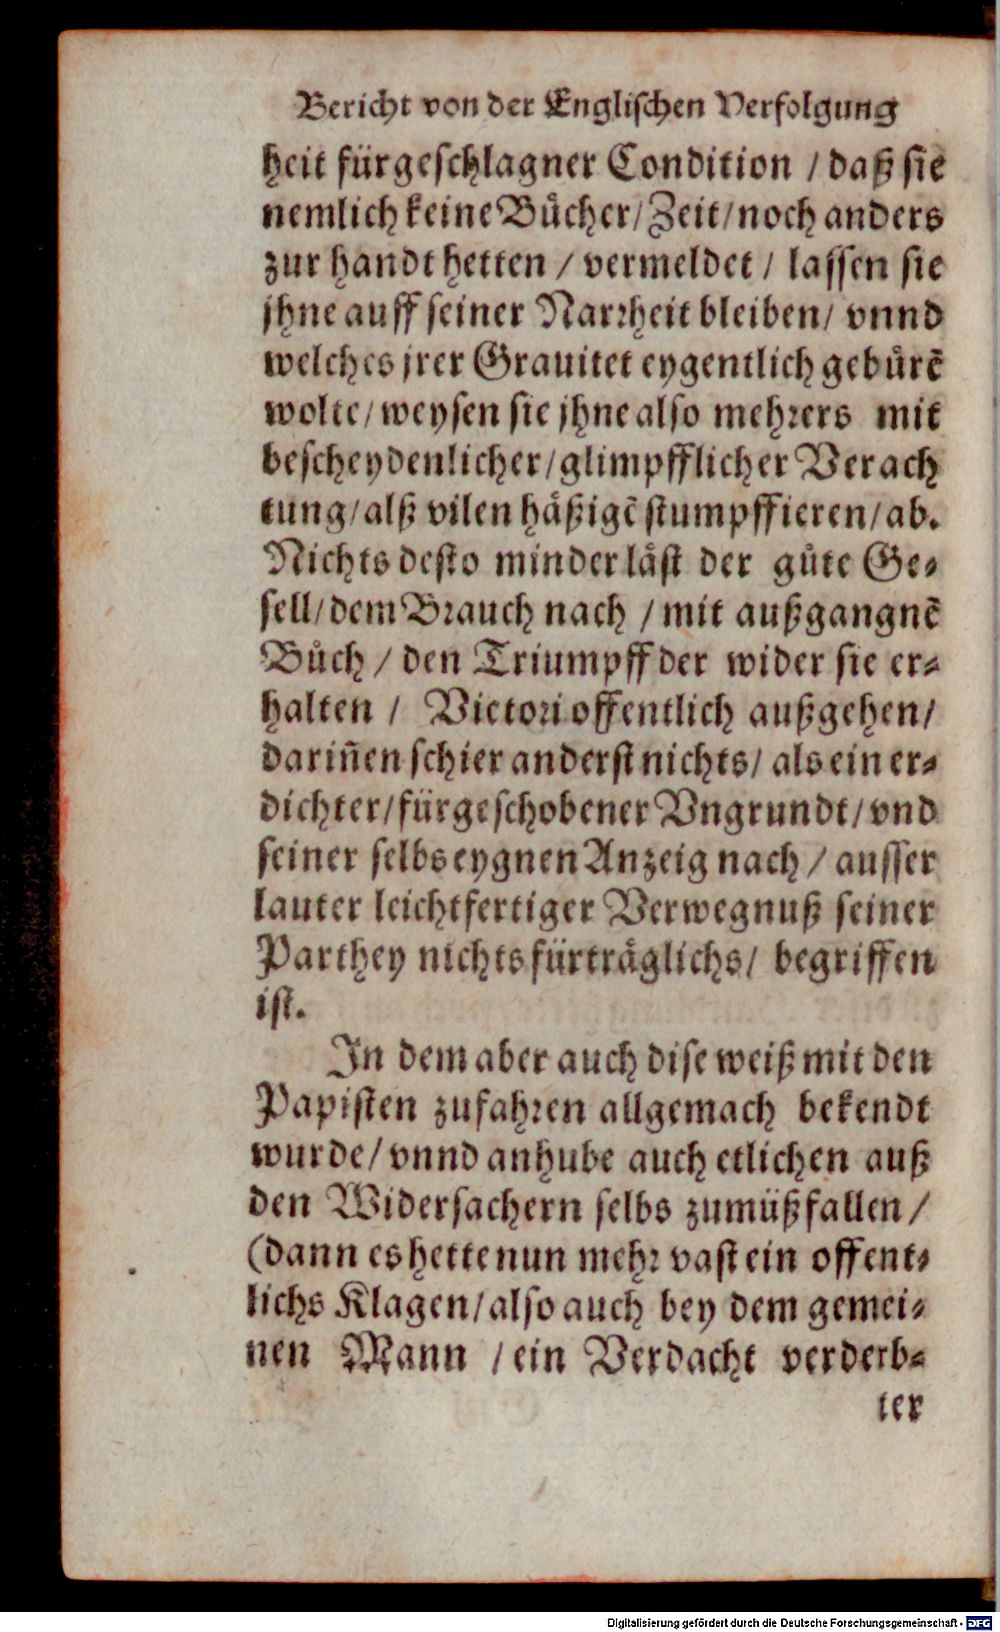 Bericht von der Englischen Verfolgung
heit fürgeschlagner Condition / daß sie
nemlich keine Bůcher / Zeit / noch anders
zur handt hetten / vermeldet / lassen sie
jhne auff seiner Narrheit bleiben / vnnd
welches jrer Grauitet eygentlich gebůrẽ
wolte / weysen sie jhne also mehrers mit
bescheydenlicher / glimpfflicher Verach
tung / alß vilen håßigẽ stumpffieren / ab.
Nichts desto minder låst der gůte Ge-
sell / dem Brauch nach / mit außgangnẽ
Bůch / den Triumpff der wider sie er-
halten / Victori offentlich außgehen /
dariñen schier anderst nichts / als ein er-
dichter / fürgeschobener Vngrundt / vnd
seiner selbs eygnen Anzeig nach / ausser
lauter leichtfertiger Verwegnuß seiner
Parthey nichts fürtråglichs / begriffen
ist.
In dem aber auch dise weiß mit den
Papisten zufahren allgemach bekendt
wurde / vnnd anhube auch etlichen auß
den Widersachern selbs zumüßfallen /
(dann es hette nun mehr vast ein offent-
lichs Klagen / also auch bey dem gemei-
nen Mann / ein Verdacht verderb-
ter
Digitalisierung gefördert durch die Deutsche Forschungsgemeinschaft - DFG